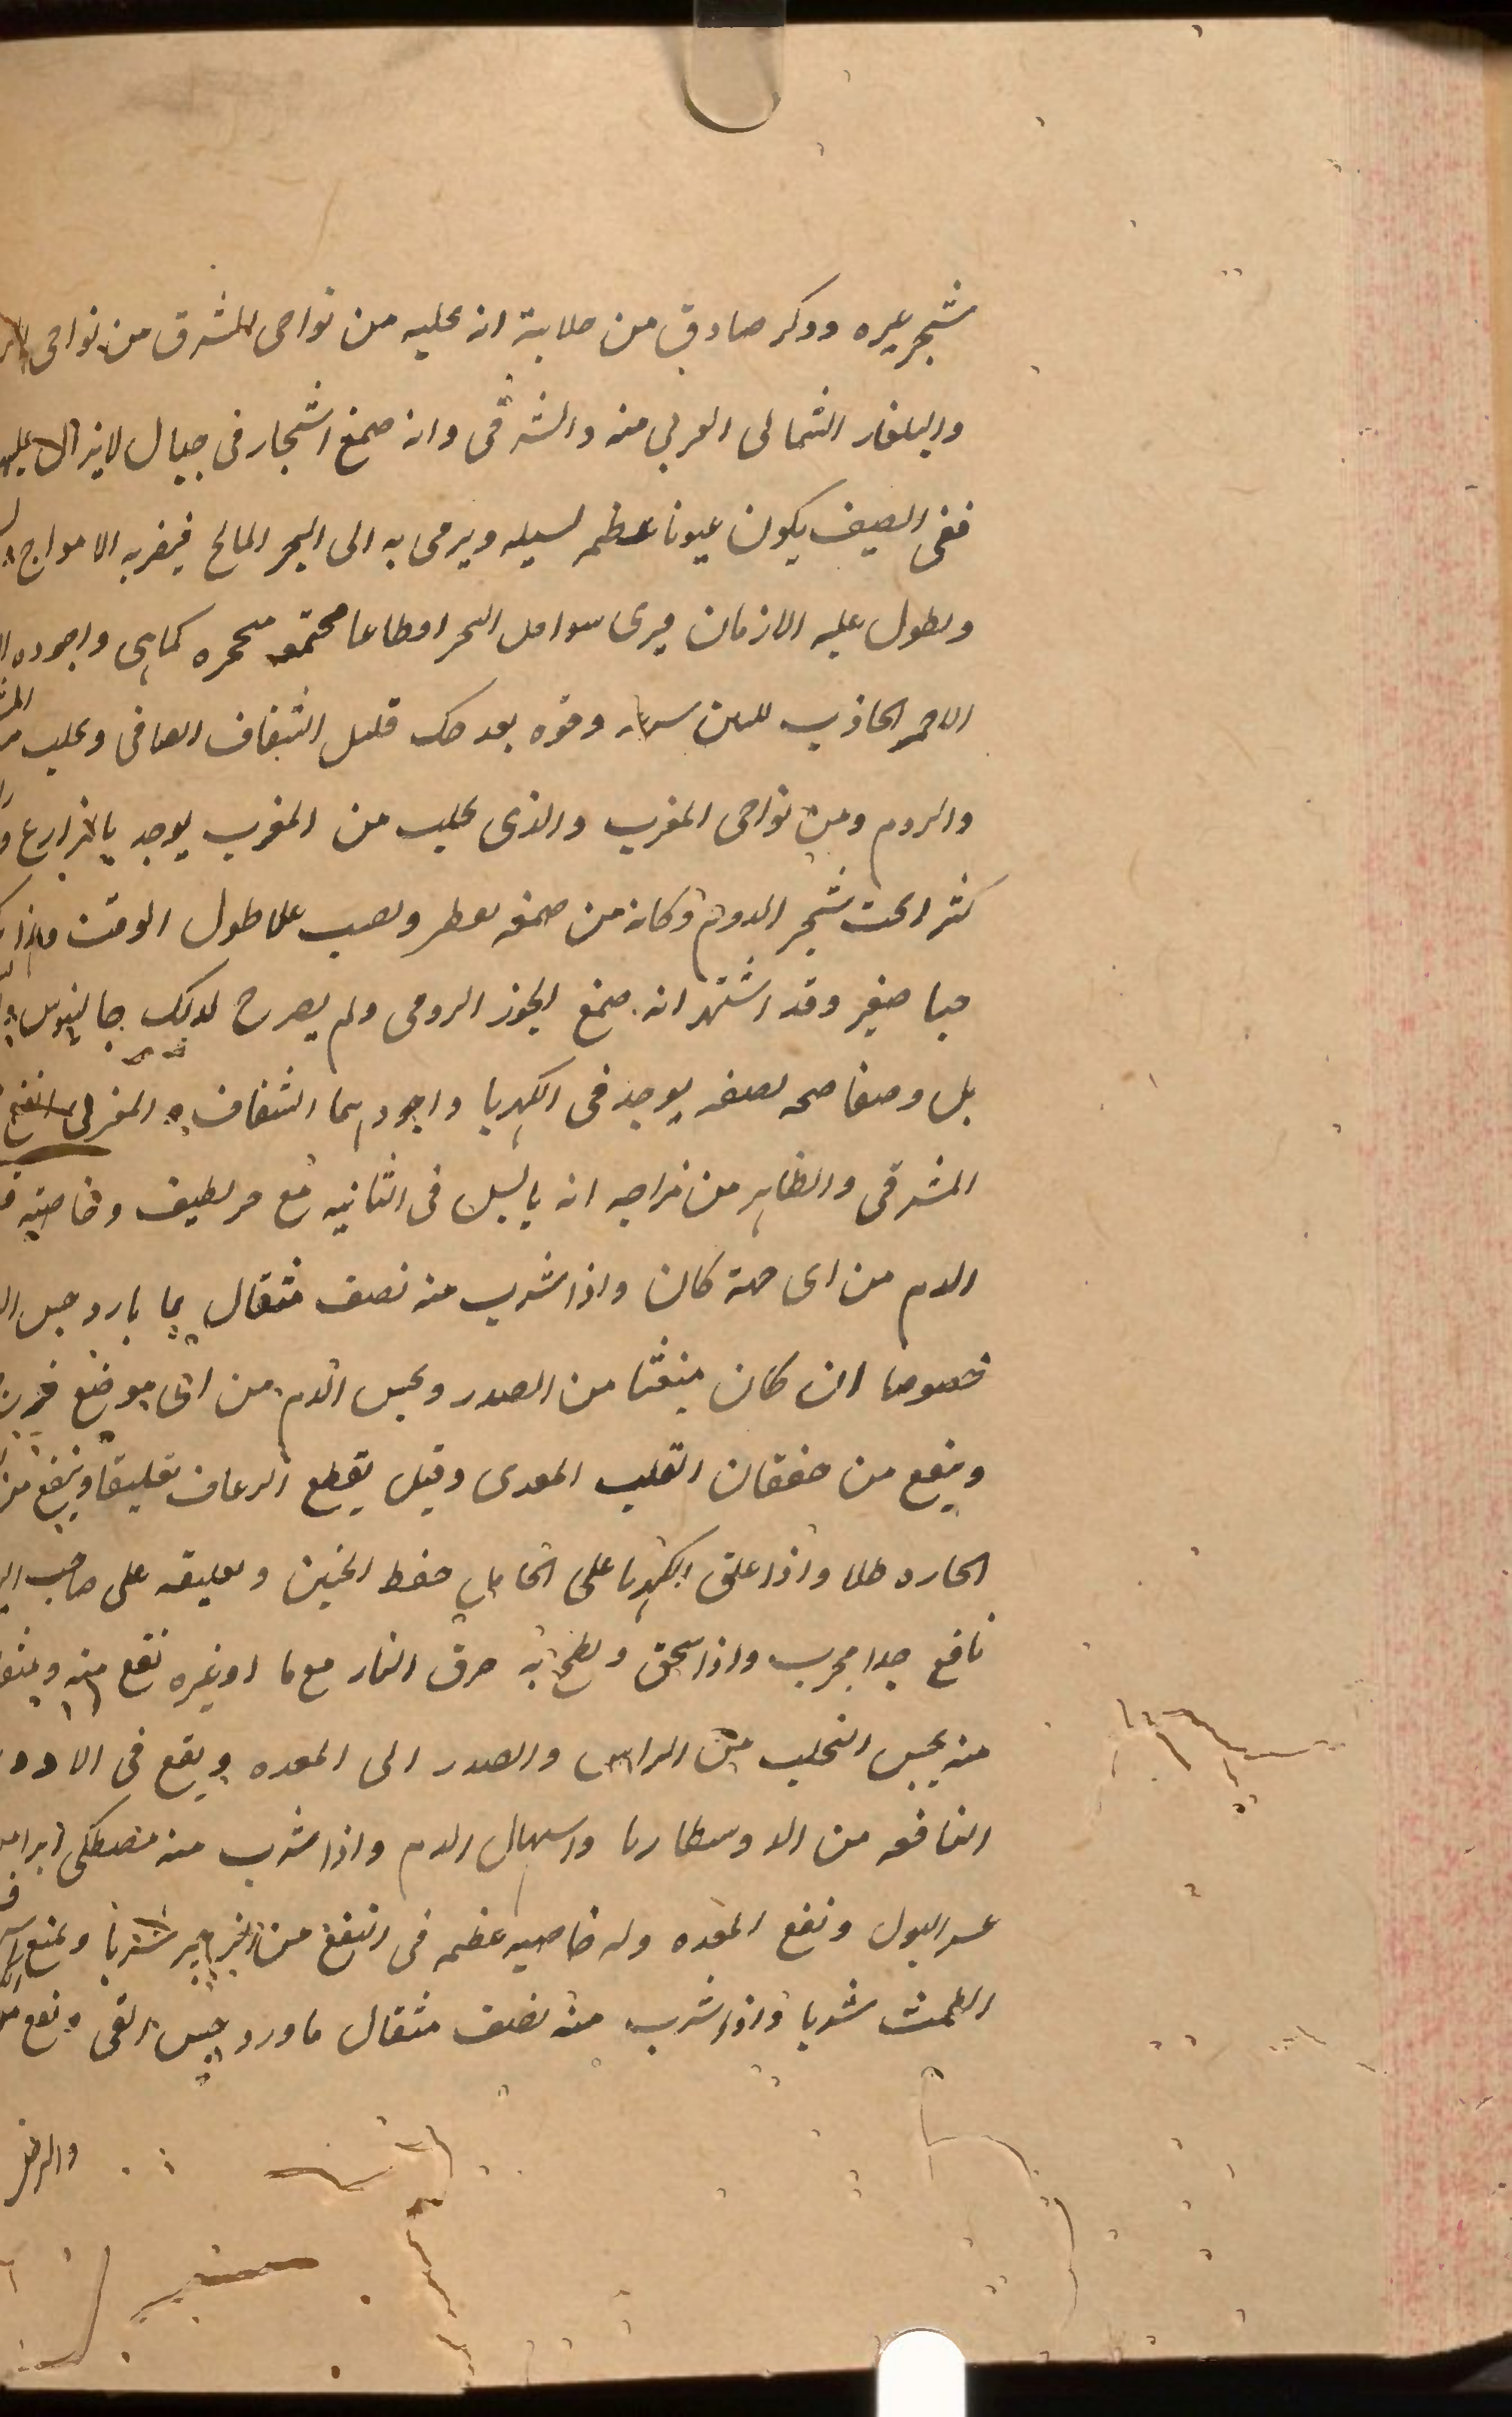 شجر غيره وذكر صادق من جلابة انه يجلب من نواحى المشرق من نواحى
والبلغار الشمالى الغربى منه والشرقى وانه صمغ اشجار فى جبال لايزال عليها
ففى الصيف يكون عيونا عظيمه لسيله ويرمى به الى البحر المالح فيضربه الامواج
ويطول عليه الازمان فيرى سواحل البحر اقطاعا مجتمعه متحجره كماهى واجوده
الاحمر الجاذب للتبن وقوه بعد حك قليل الشفاف الصافى ويجلب من
والروم ومن نواحى المغرب والذى يجلب من المغرب يوجد بالمزارع
كثر اتحت شجر الدوم وكانه من صمغه يقطر ويصلب على طول الوقت وهذا
حبا صغير وقد اشتهر انه صمغ الجوز الرومى ولم يصرح لذلك جالينوس
بل وصفا صحه لصفه يوجد فى الكهربا واجودهما الشفاف والمغربى انفع
المشرقى والظاهر من مزاجه انه يابس فى الثانيه مع حر لطيف وخاصيته
الدم من اى جهة كان واذا شرب منه نصف مثقال بما بارد حبس
خصوصا ان كان منبعثا من الصدر ويحبس الدم من اى موضع
وينفع من خفقان القلب المعدى وقيل يقطع الرعاف تعليقا وينفع من
الحاره طلا واذا علق الكهربا على الحامل حفظ الجنين وتعليقه على صاحب
نافع جدا مجرب واذا سحق ولطخ به حرق النار مع ما اوغيره نفع منه
منه يحبس التحلب من الراس والصدر الى المعده ويقع فى
النافعه من الدوسنطاريا واسهال الدم واذا شرب منه مصطكى ابرا
عسر البول ونفع المعده وله خاصيه عظيمه فى النفع من شربا ويمنع
الطمث شربا واذا شرب منه نصف مثقال ماورد حبس القى ونفع
والرض